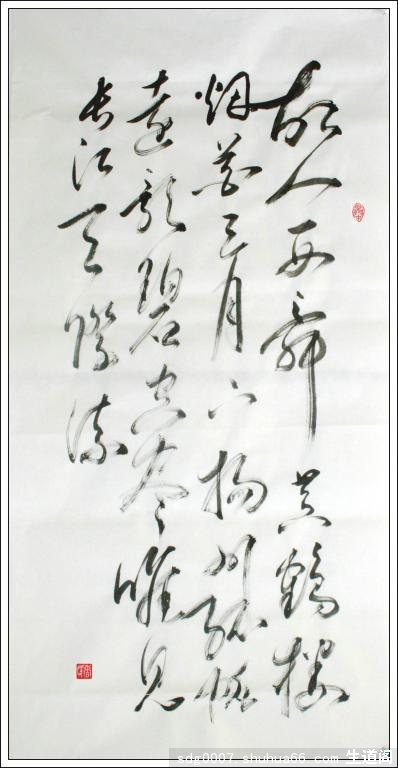 故人西辭黃鶴樓
烟花三月下揚州孤帆
遠影碧空盡唯見
長江天際流
sdr0007 shuhua66.com 生道阁